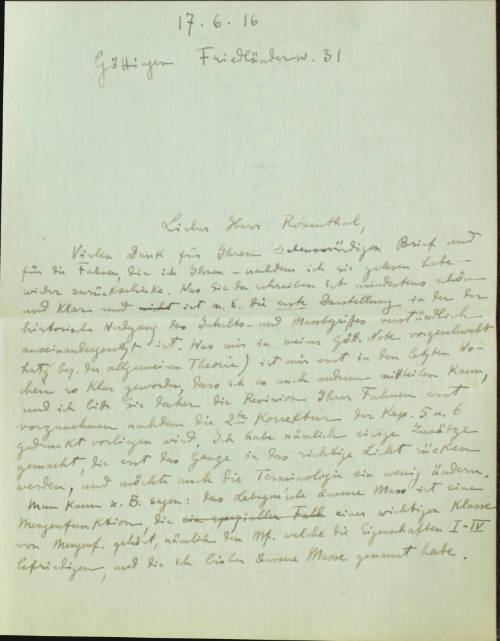 17.6.16
Göttingen Friedländerw. 31
Lieber Herr Rosenthal,
Vielen Dank für Ihren liebenswürdigen Brief und
für die Fahnen, die ich Ihnen – nachdem ich sie gelesen habe –
wieder zurückschicke. Was Sie da schreiben ist mindestens schön
und klar und nicht ist m. E. die erste Darstellung in der der
historische Werdgang des Inhalts- und Massbegriffes verständlich
auseinandergesetzt ist. Was mir in meiner Gött. Note vorgeschwebt
hat (bez. der allgemeinen Theorie) ist mir erst in den letzten Wo-
chen so klar geworden, dass ich es auch anderen mitteilen kann,
und ich bitte Sie daher die Revision Ihrer Fahnen erst
vorzunehmen nachdem die 2te Korrektur der Kap. 5 u. 6
gedruckt vorliegen wird. Ich habe nämlich einige Zusätze
gemacht, die erst das Ganze in das richtige Licht rücken
werden, und möchte auch die Terminologie ein wenig ändern.
Man kann z. B. sagen: das Lebesgue'sche äussere Mass ist eine
Mengenfunktion, die ein spezieller Fall einer wichtigen Klasse
von Mengenf. gehört, nämlich den Mf. welche die Eigenschaften I–IV
befriedigen, und die ich bisher äussere Masse genannt habe.